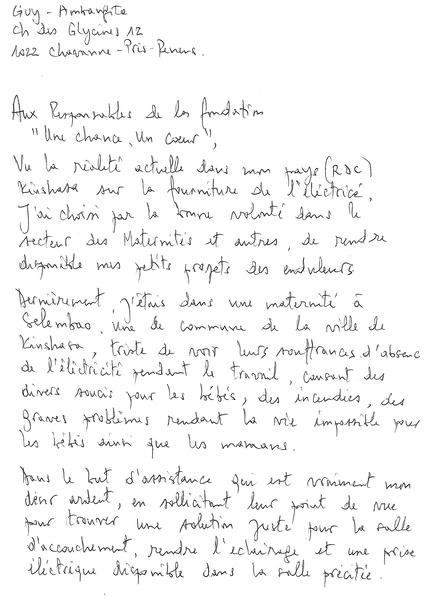 Guy - Ambangite
Ch des Glycines 12
1022 Chavanne-Près-Renens.
Aux Responsables de la fondation
"Une chance, Un coeur",
Vu la réalité actuelle dans mon pays (RDC)
Kinshasa sur la fourniture de l'éléctricé,
J'ai choisi par la bonne volonté dans le
secteur des Maternités et autres, de rendre
disponible mes petits projets des onduleurs
Dernièrement j'étais dans une maternité à
Selembao, une de commune de la ville de
Kinshasa, triste de voir leurs souffrances d'absence
de l'éléctricité pendant le travail, causant des
divers soucis pour les bébés, des incendies, des
graves problèmes rendant la vie impossible pour
les bébés ainsi que les mamans.
Dans le but d'assistance qui est vraiment mon
désir ardent, en sollicitant leur point de vue
pour trouver une solution juste pour la salle
d'accouchement, rendre l'eclairage et une prise
éléctrique disponible dans la salle précitée.